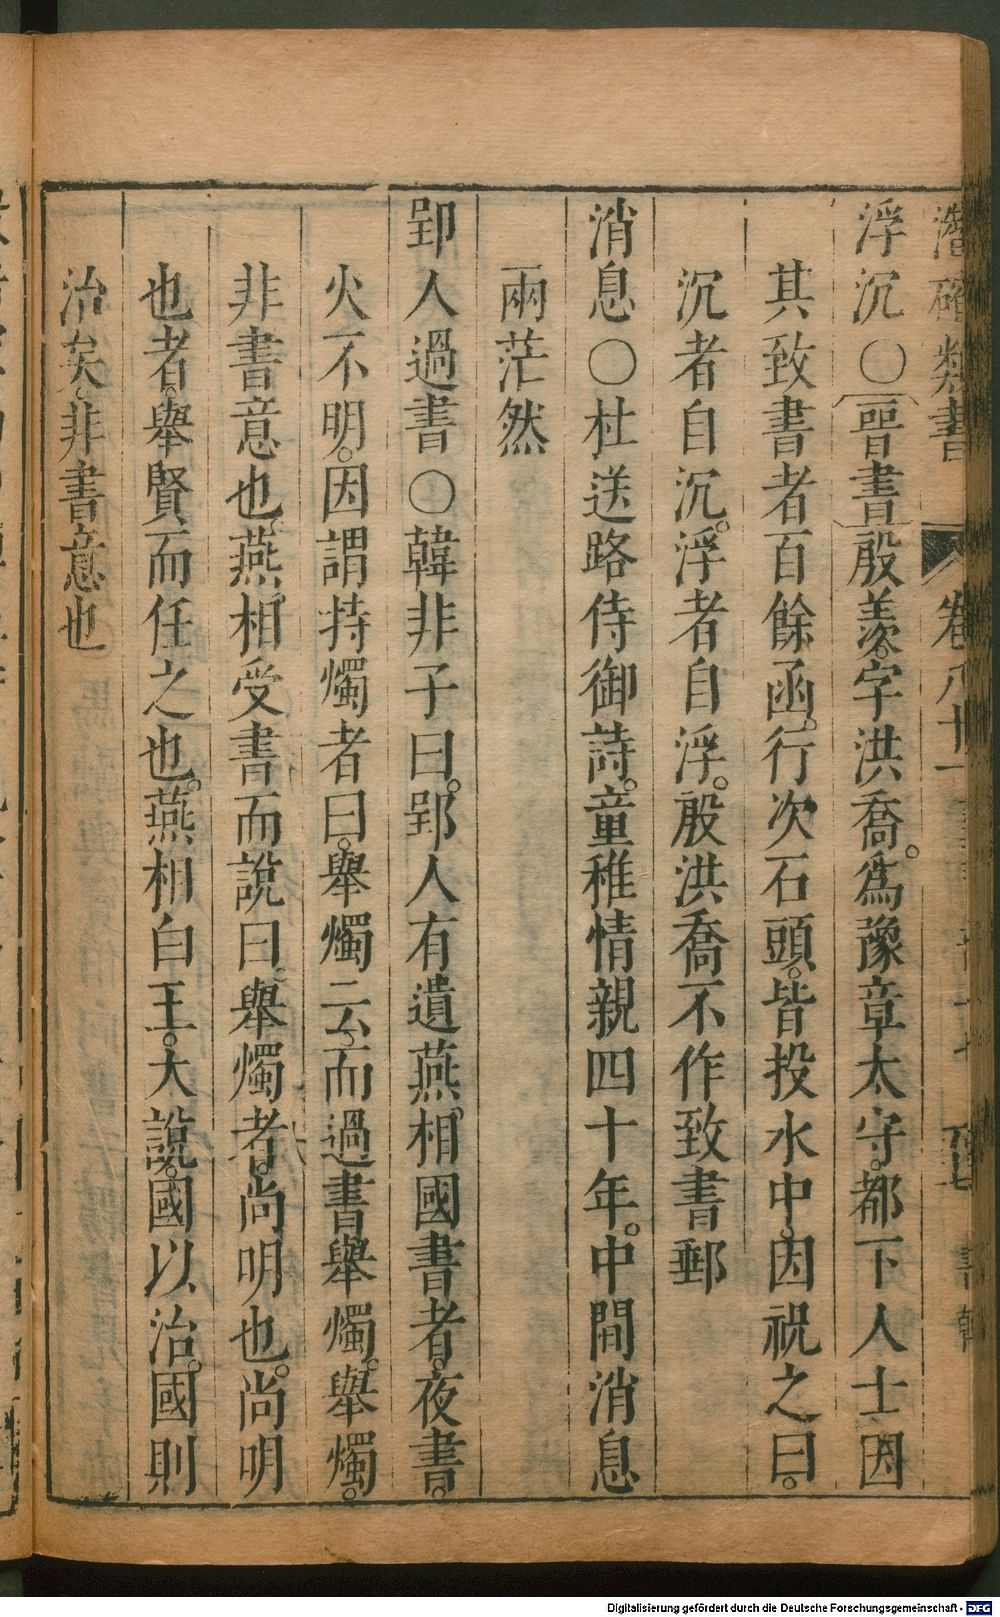 潛確類書 卷八十一
浮沉〇晉書殷羨。字洪喬。爲豫章太守。都下人士因
其致書者百餘函。行次石頭。皆投水中。因祝之曰。
沉者自沉。浮者自浮。殷洪喬不作致書郵
消息〇杜送路侍御詩。童稚情親四十年。中間消息
兩茫然
郢人過書〇韓非子曰。郢人有遺燕。相國書者。夜書。
火不明。因謂持燭者曰。舉燭云。而過書舉燭。舉燭。
非書意也。燕。相受書而說曰。舉燭者。尚明也。尚明
也者。舉賢而任之也。燕相白王。大說。國以治。國則
治矣。非書意也
Digitalisierung gefördert durch die Deutsche Forschungsgemeinschaft - DFG